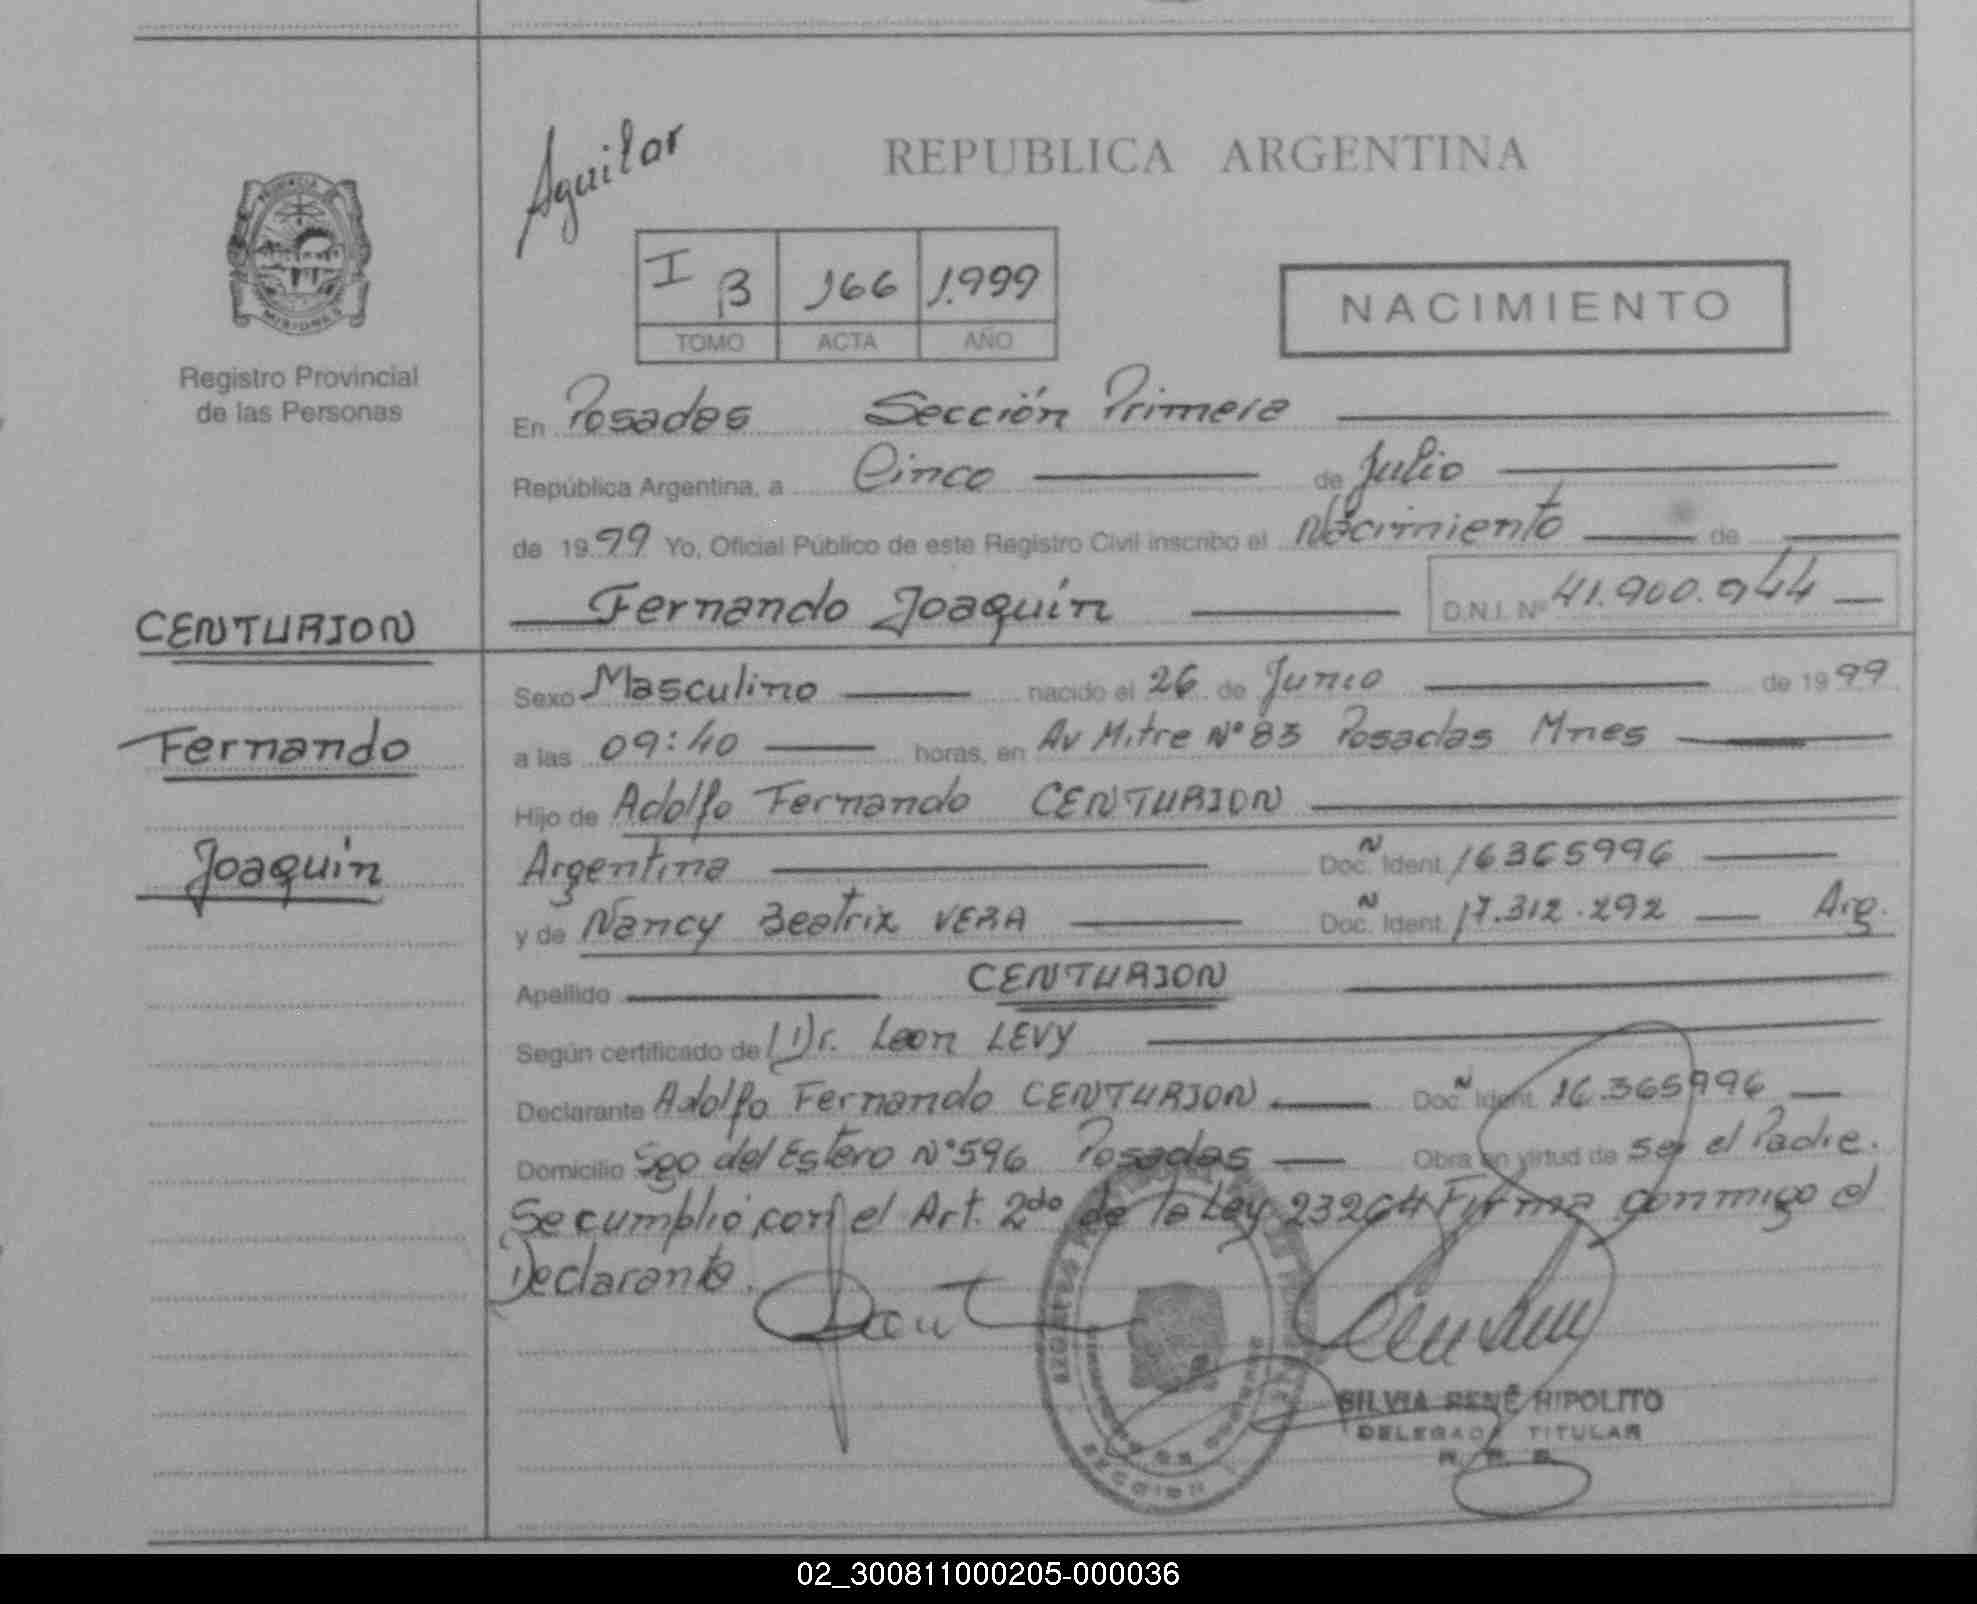 Aguilar
REPUBLICA ARGENTINA
I 3 166 1.999
TOMO ACTA AÑO
NACIMIENTO
MISIONES
Registro Provincial
de las Personas
En Posadas Sección Primera
República Argentina, a Cinco de Julio
de 1999 Yo, Oficial Público de este Registro Civil inscribo el Nacimiento de
Fernando Joaquín D.N.I. Nº 41.900.944
CENTURION
Fernando
Joaquín
Sexo Masculino nacido el 26 de Junio de 1999
a las 09:40 horas, en Av Mitre Nº 83 Posadas Mnes
Hijo de Adolfo Fernando CENTURION
Argentina Doc. Ident. 16365996
y de Nancy Beatriz VERA Doc. Ident. 17.312.292 Arg.
Apellido CENTURION
Según certificado de Dr. Leon LEVY
Declarante Adolfo Fernando CENTURION Doc. Ident. 16.365996
Domicilio Sgo del Estero Nº 596 Posadas Obra en virtud de ser el Padre.
Se cumplió con el Art. 2do de la Ley 23264 Firma conmigo el
Declarante.
SILVIA RENÉ HIPOLITO
DELEGADA TITULAR
02_300811000205-000036